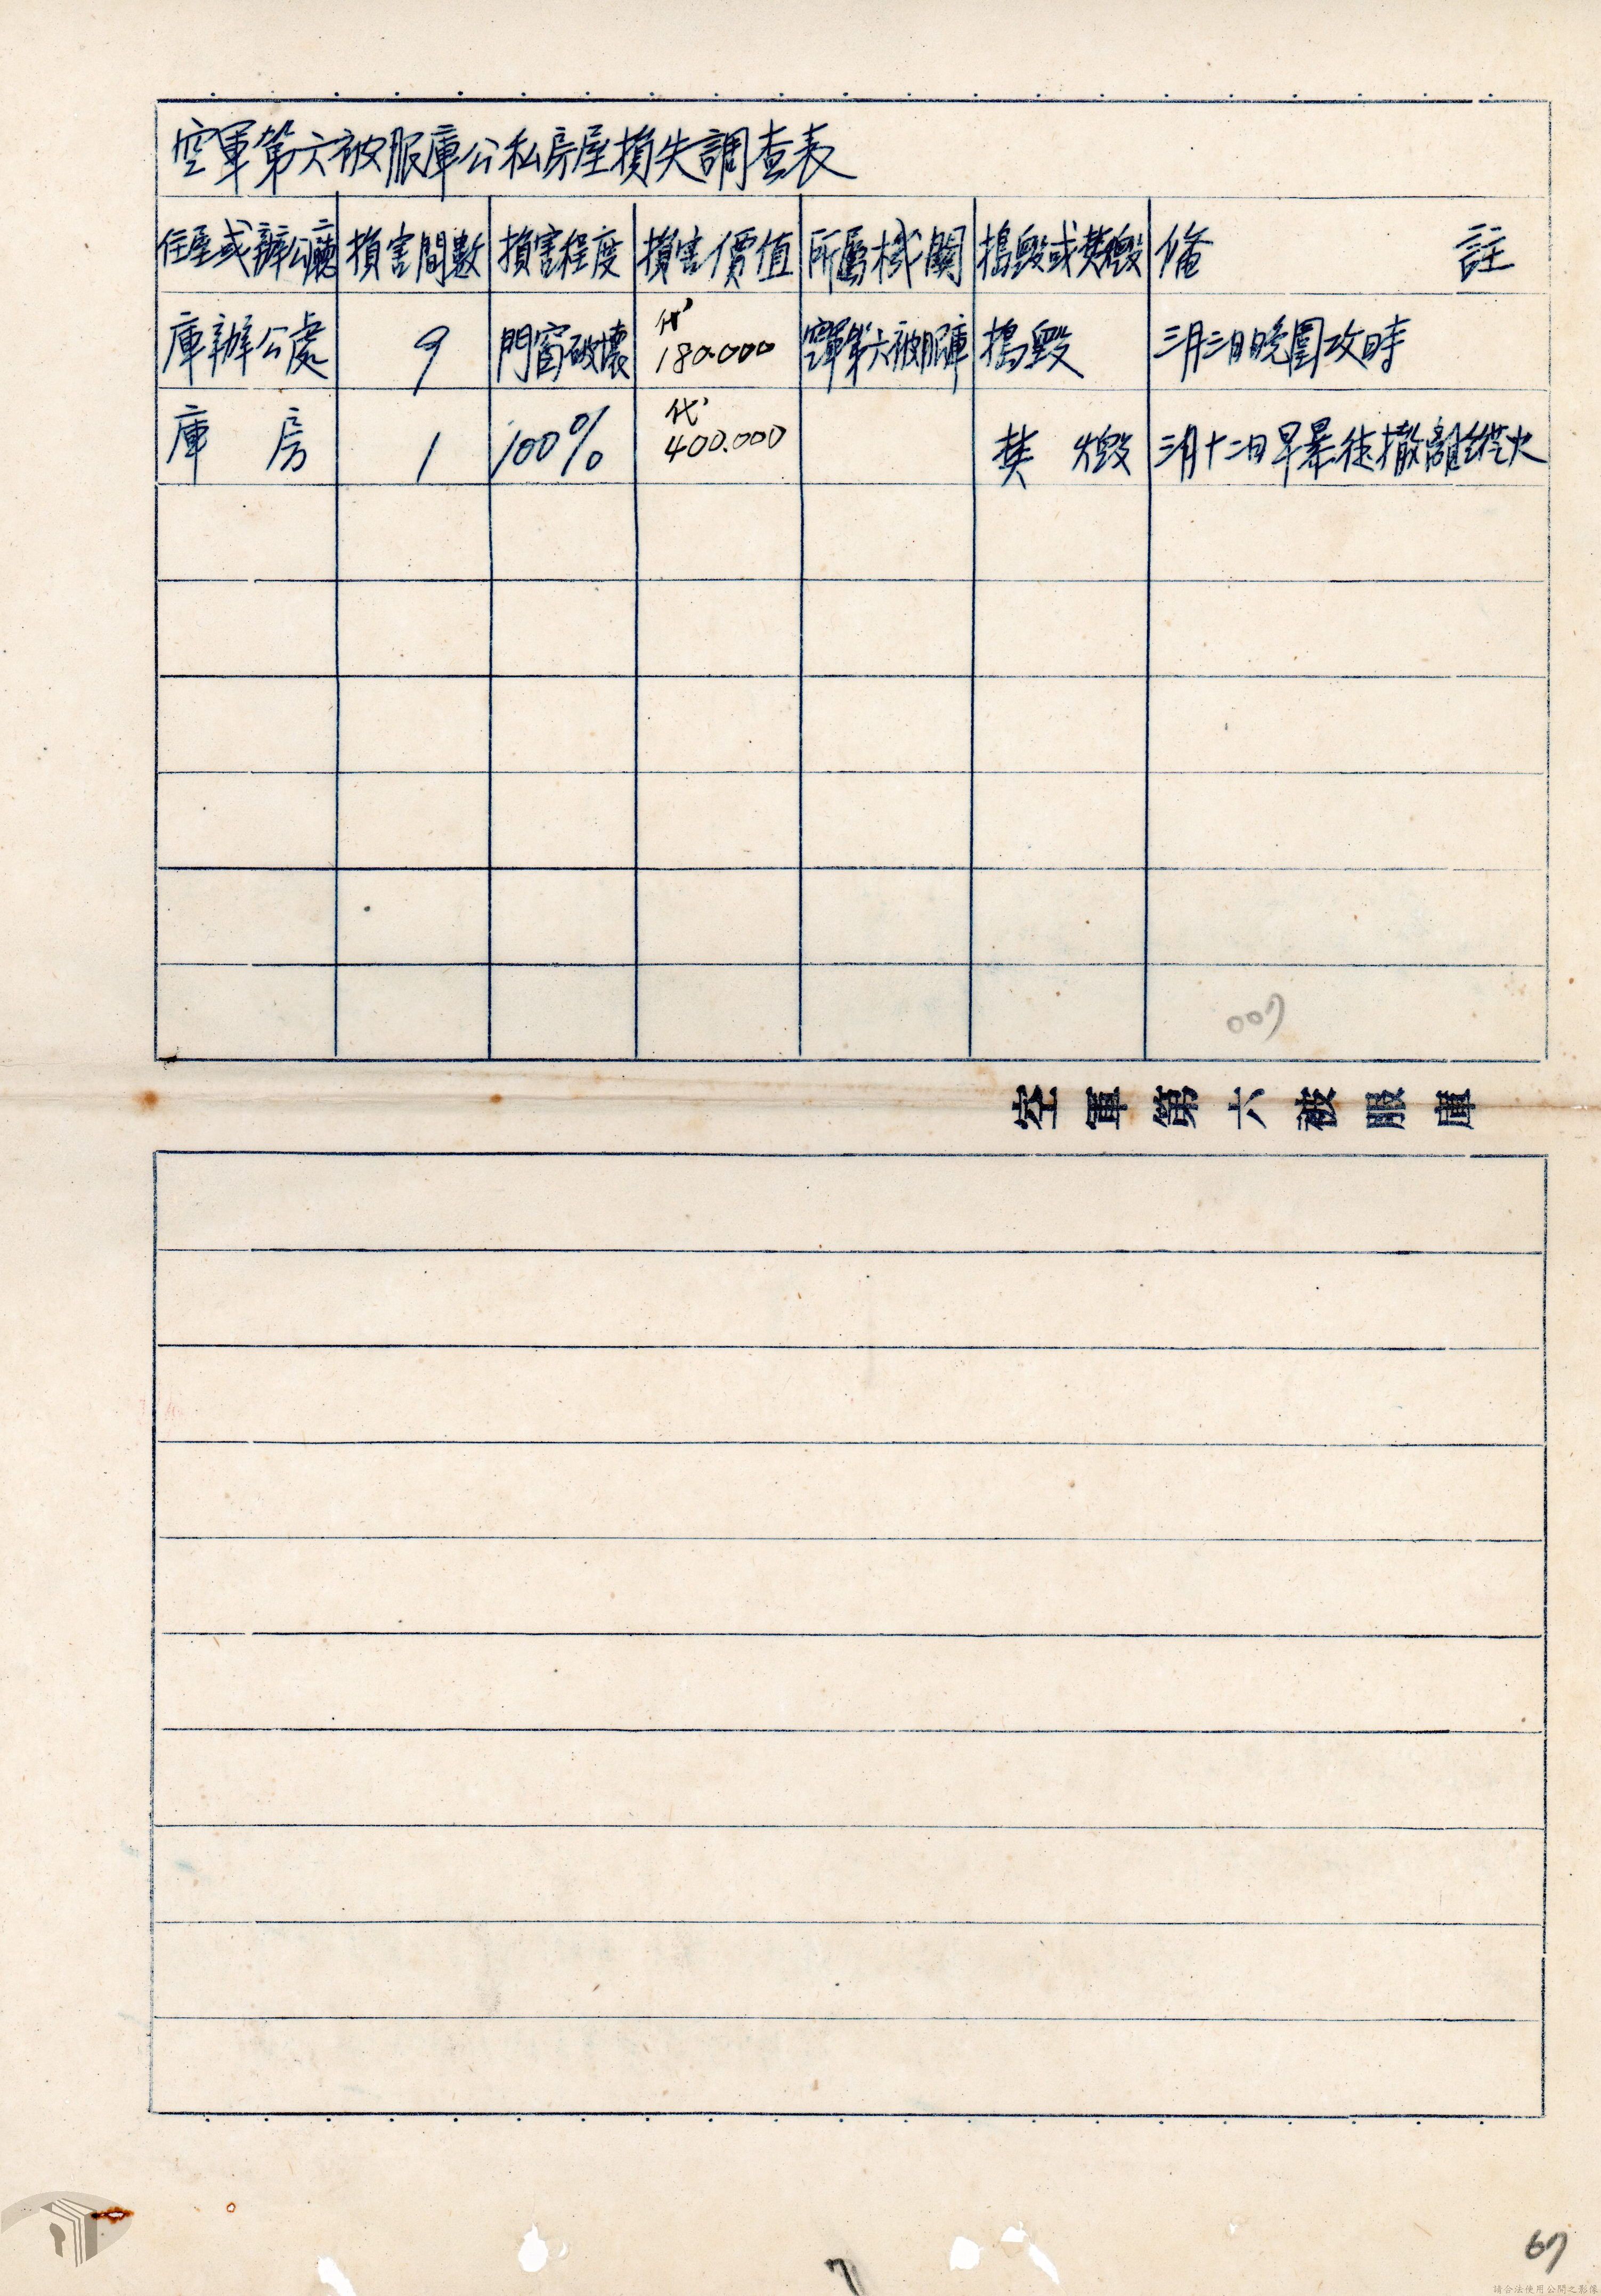 空軍第六被服庫公私房屋損失調查表
住屋或辦公廳 損害間數 損害程度 損害價值 所屬機關 搗毀或焚燬 備註
庫辦公處 9 門窗破壞 180.000 空軍第六被服庫 搗毀 三月三日晚圍攻時
庫房 1 100% 代 400.000 焚燬 三月十二日早暴徒撤離縱火
007
空軍第六被服庫
7
67
請合法使用公開之影像